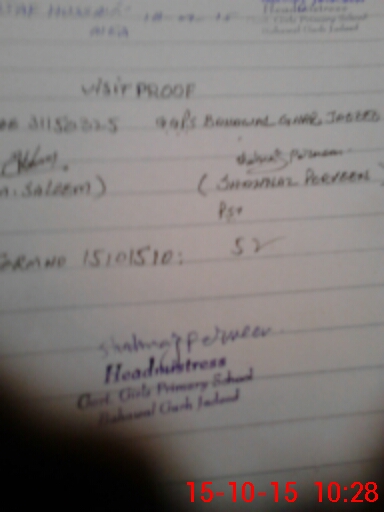 Headmistress
Girls Primary School
VISIT PROOF
31150325 GGPS BAHAWAL GARH JADEED
Shahnaz Perveen
SALEEM) (SHAHNAZ PERVEEN
PST
FORM NO 15101510: 52
Shahnaz Perveen
Headmistress
Govt. Girls Primary School
Bahawal Garh Jadeed
15-10-15 10:28